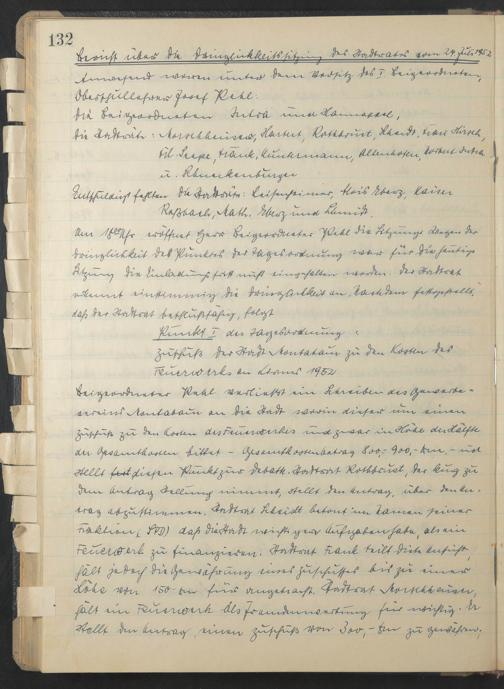 132
Bericht über die Dringlichkeitssitzung des Stadtrates vom 24. Juli 1952
Anwesend waren unter dem Vorsitz des I. Beigeordneten,
Oberstudienrat Josef Kehl:
die Beigeordneten und Hannappel,
die Stadträte: Hackert, Kothbrust, Frau Kirsch,
Frank, Kunkemann,
u. Schneckenbürger
Entschuldigt fehlten die Stadträte: Leisenheimer, Alois Eberz, Kaiser
Roßbach, Math. Eberz und
Um 18 Uhr eröffnet Herr Beigeordneter Kehl die Sitzung. Wegen der
Dringlichkeit des Punktes der Tagesordnung war für die heutige
Sitzung die Einladungsfrist nicht eingehalten worden. Der Stadtrat
erkennt einstimmig die Dringlichkeit an. Nachdem festgestellt,
daß der Stadtrat beschlußfähig, folgt
Punkt I der Tagesordnung:
Zuschuß der Stadt Montabaur zu den Kosten des
Feuerwerks an Kermes 1952
Beigeordneter Kehl verliest ein Schreiben des Gewerbe-
vereins Montabaur an die Stadt worin dieser um einen
Zuschuß zu den Kosten des Feuerwerkes und zwar in Höhe der Hälfte
der Gesamtkosten bittet - Gesamtkostenbetrag 800,- 900,- DM, - und
stellt diesen Punkt zur Debatte. Stadtrat Kothbrust, der kurz zu
dem Antrag Stellung nimmt, stellt den Antrag, über den An-
trag abzustimmen. Stadtrat Scheidt betont im Namen seiner
Fraktion (SPD) daß die Stadt wichtigere Aufgaben habe, als ein
Feuerwerk zu finanzieren. Stadtrat Frank teilt diese Ansicht,
hält jedoch die Gewährung eines Zuschusses bis zu einer
Höhe von 150 DM für angebracht. Stadtrat
hält ein Feuerwerk als Fremdenwerbung für wichtig. Er
stellt den Antrag einen Zuschuß von 300,- DM zu gewähren,